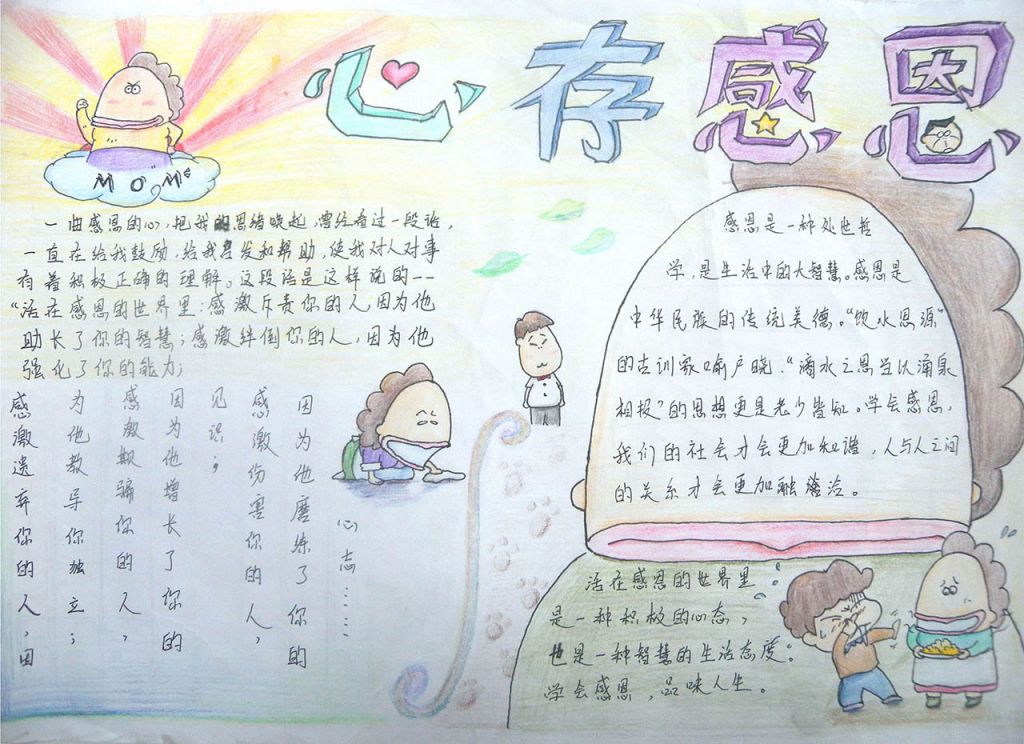 心存感恩
MOM
一曲感恩的心,把我的思绪唤起,曾经看过一段话,
一直在给我鼓励,给我启发和帮助,使我对人对事
有着积极正确的理解。这段话是这样说的--
“活在感恩的世界里:感激斥责你的人,因为他
助长了你的智慧;感激绊倒你的人,因为他
强化了你的能力;
感激遗弃你的人,因
为他教导你独立;
感激欺骗你的人,
因为他增长了你的
见识;
感激伤害你的人,
因为他磨练了你的
心态……
感恩是一种处世哲
学,是生活中的大智慧。感恩是
中华民族的传统美德。“饮水思源”
的古训家喻户晓,“滴水之恩当以涌泉
相报”的思想更是老少皆知。学会感恩,
我们的社会才会更加和谐,人与人之间
的关系才会更加融洽。
活在感恩的世界里:
是一种积极的心态,
也是一种智慧的生活态度:
学会感恩,品味人生。